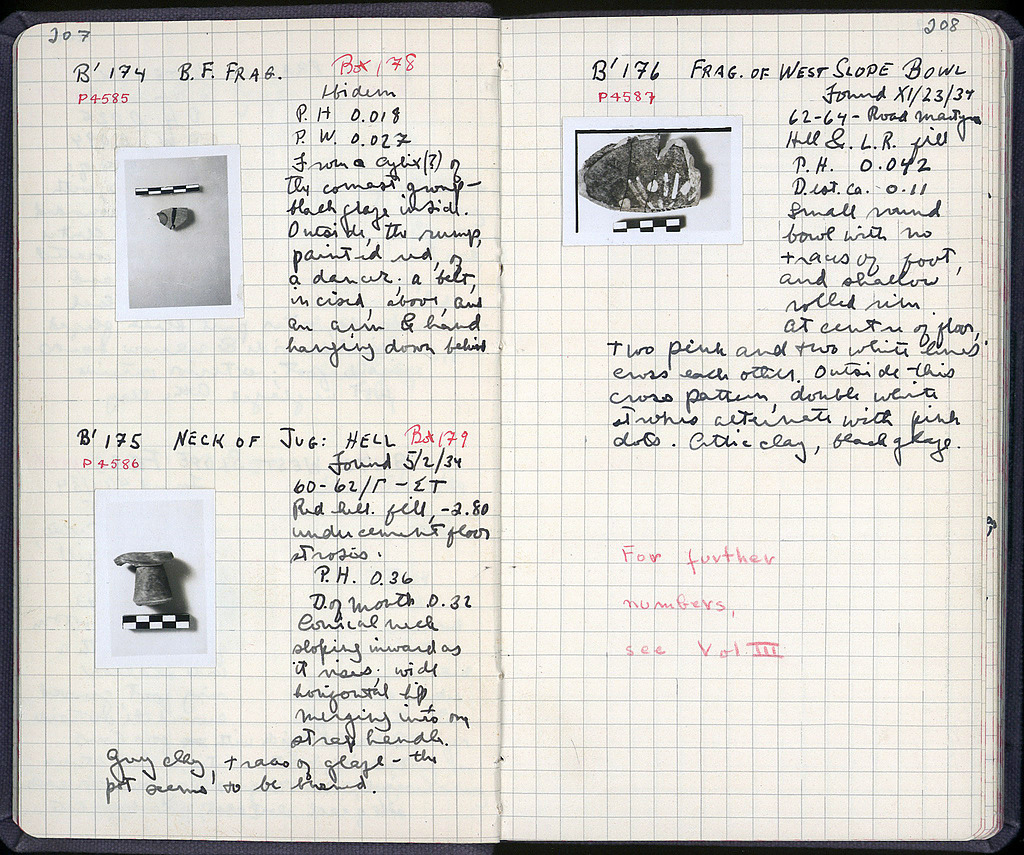 207
B' 174 B.F. FRAG. Box 178
P4585
Ibidem
P.H 0.018
P.W. 0.027
From a cylix(?) of
the comast group –
black glaze inside.
Outside, the rump,
painted red, of
a dancer; a belt,
incised, above, and
an arm & hand
hanging down behind
B' 175 NECK OF JUG: HELL Box 179
P4586
Found 5/2/34
60-62/Γ – ΣΤ
Red hell. fill, -2.80
under cement floor
strosis.
P.H. 0.36
D. of mouth 0.32
Conical neck
sloping inward as
it rises; wide
horizontal lip,
merging into
strap handle.
Grey clay, traces of glaze – the
pot seems to be burned.
208
B' 176 FRAG. OF WEST SLOPE BOWL
P4587
Found XI/23/34
62-64 – Road
Hell & L.R. fill
P.H. 0.042
D. est. ca. 0.11
Small round
bowl with no
traces of foot,
and shallow
rolled rim.
At centre of floor,
two pink and two white lines
cross each other. Outside this
cross pattern, double white
strokes alternate with pink
dots. Attic clay, black glaze.
For further
numbers,
see Vol. III